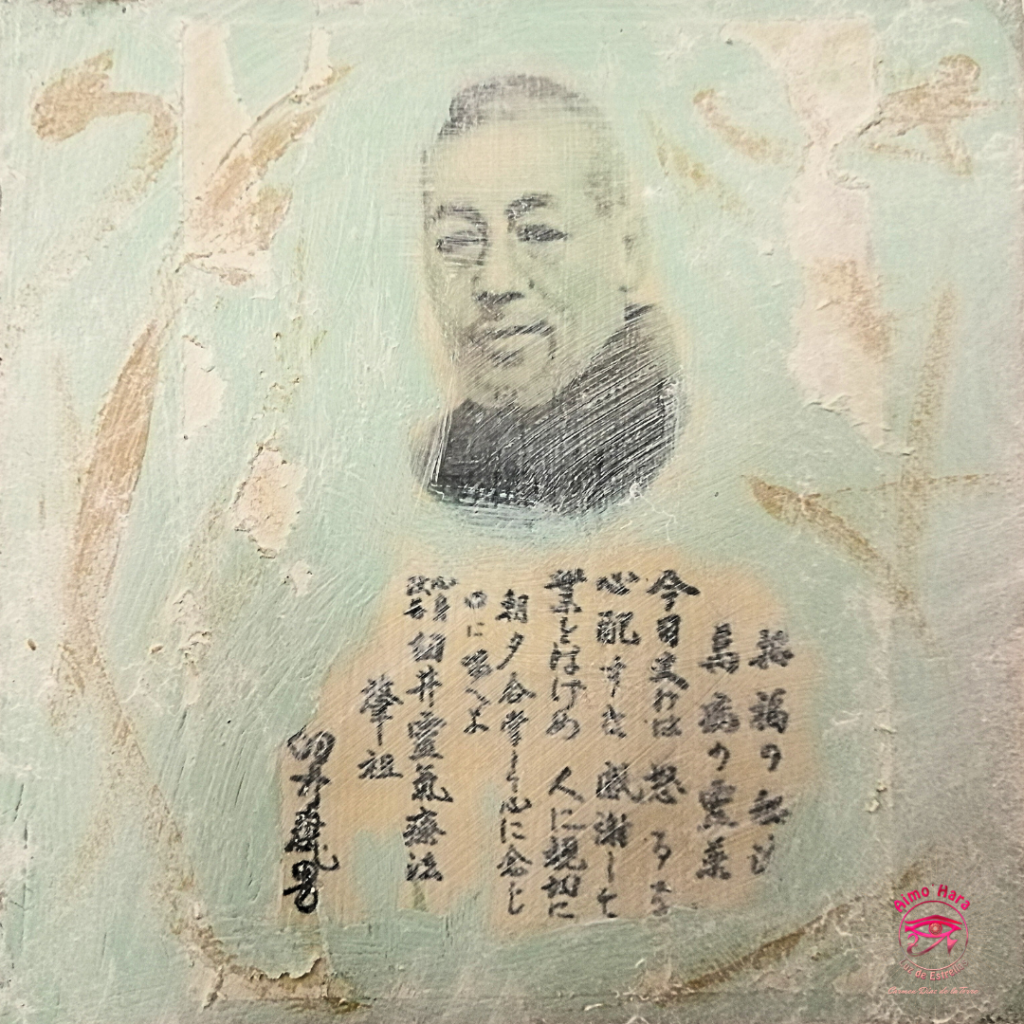 招福の秘法
萬病の靈薬
今日丈けは 怒るな
心配すな 感謝して
業をはげめ 人に親切に
朝夕合掌して心に念じ
口に唱へよ
心身改善 臼井靈氣療法
肇祖
Aimo Hara
Luz de Estrella